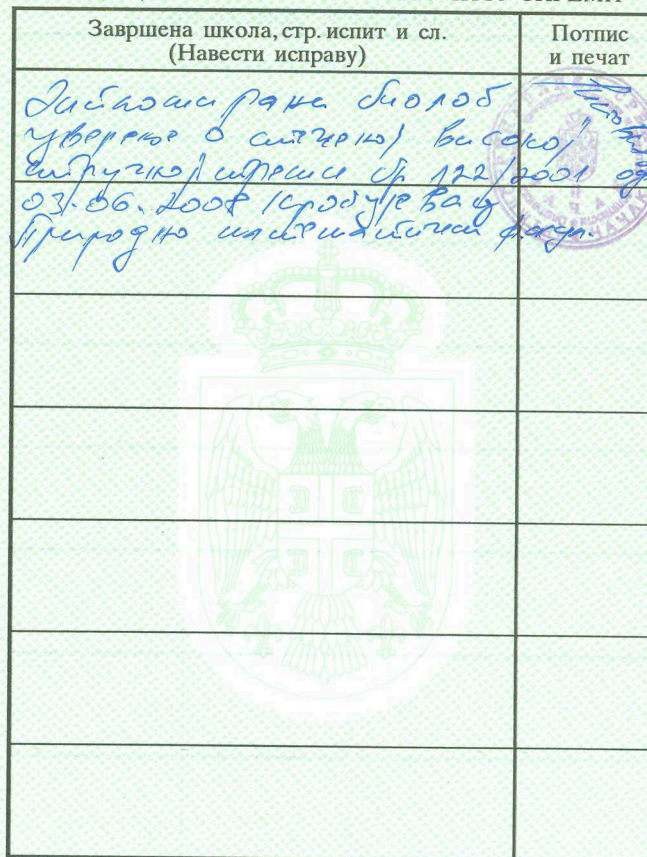 Завршена школа, стр. испит и сл.
(Навести исправу)
Потпис
и печат
Дипломирани биолог
уверење о стеченој високој
стручној спреми бр 122/2001 од
03.06. Крагујевац
Природно математички факул.